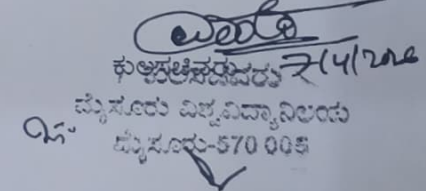 ಕುಲಸಚಿವರು 7/4/2026
ಮೈಸೂರು ವಿಶ್ವವಿದ್ಯಾನಿಲಯ
ಮೈಸೂರು-570 005